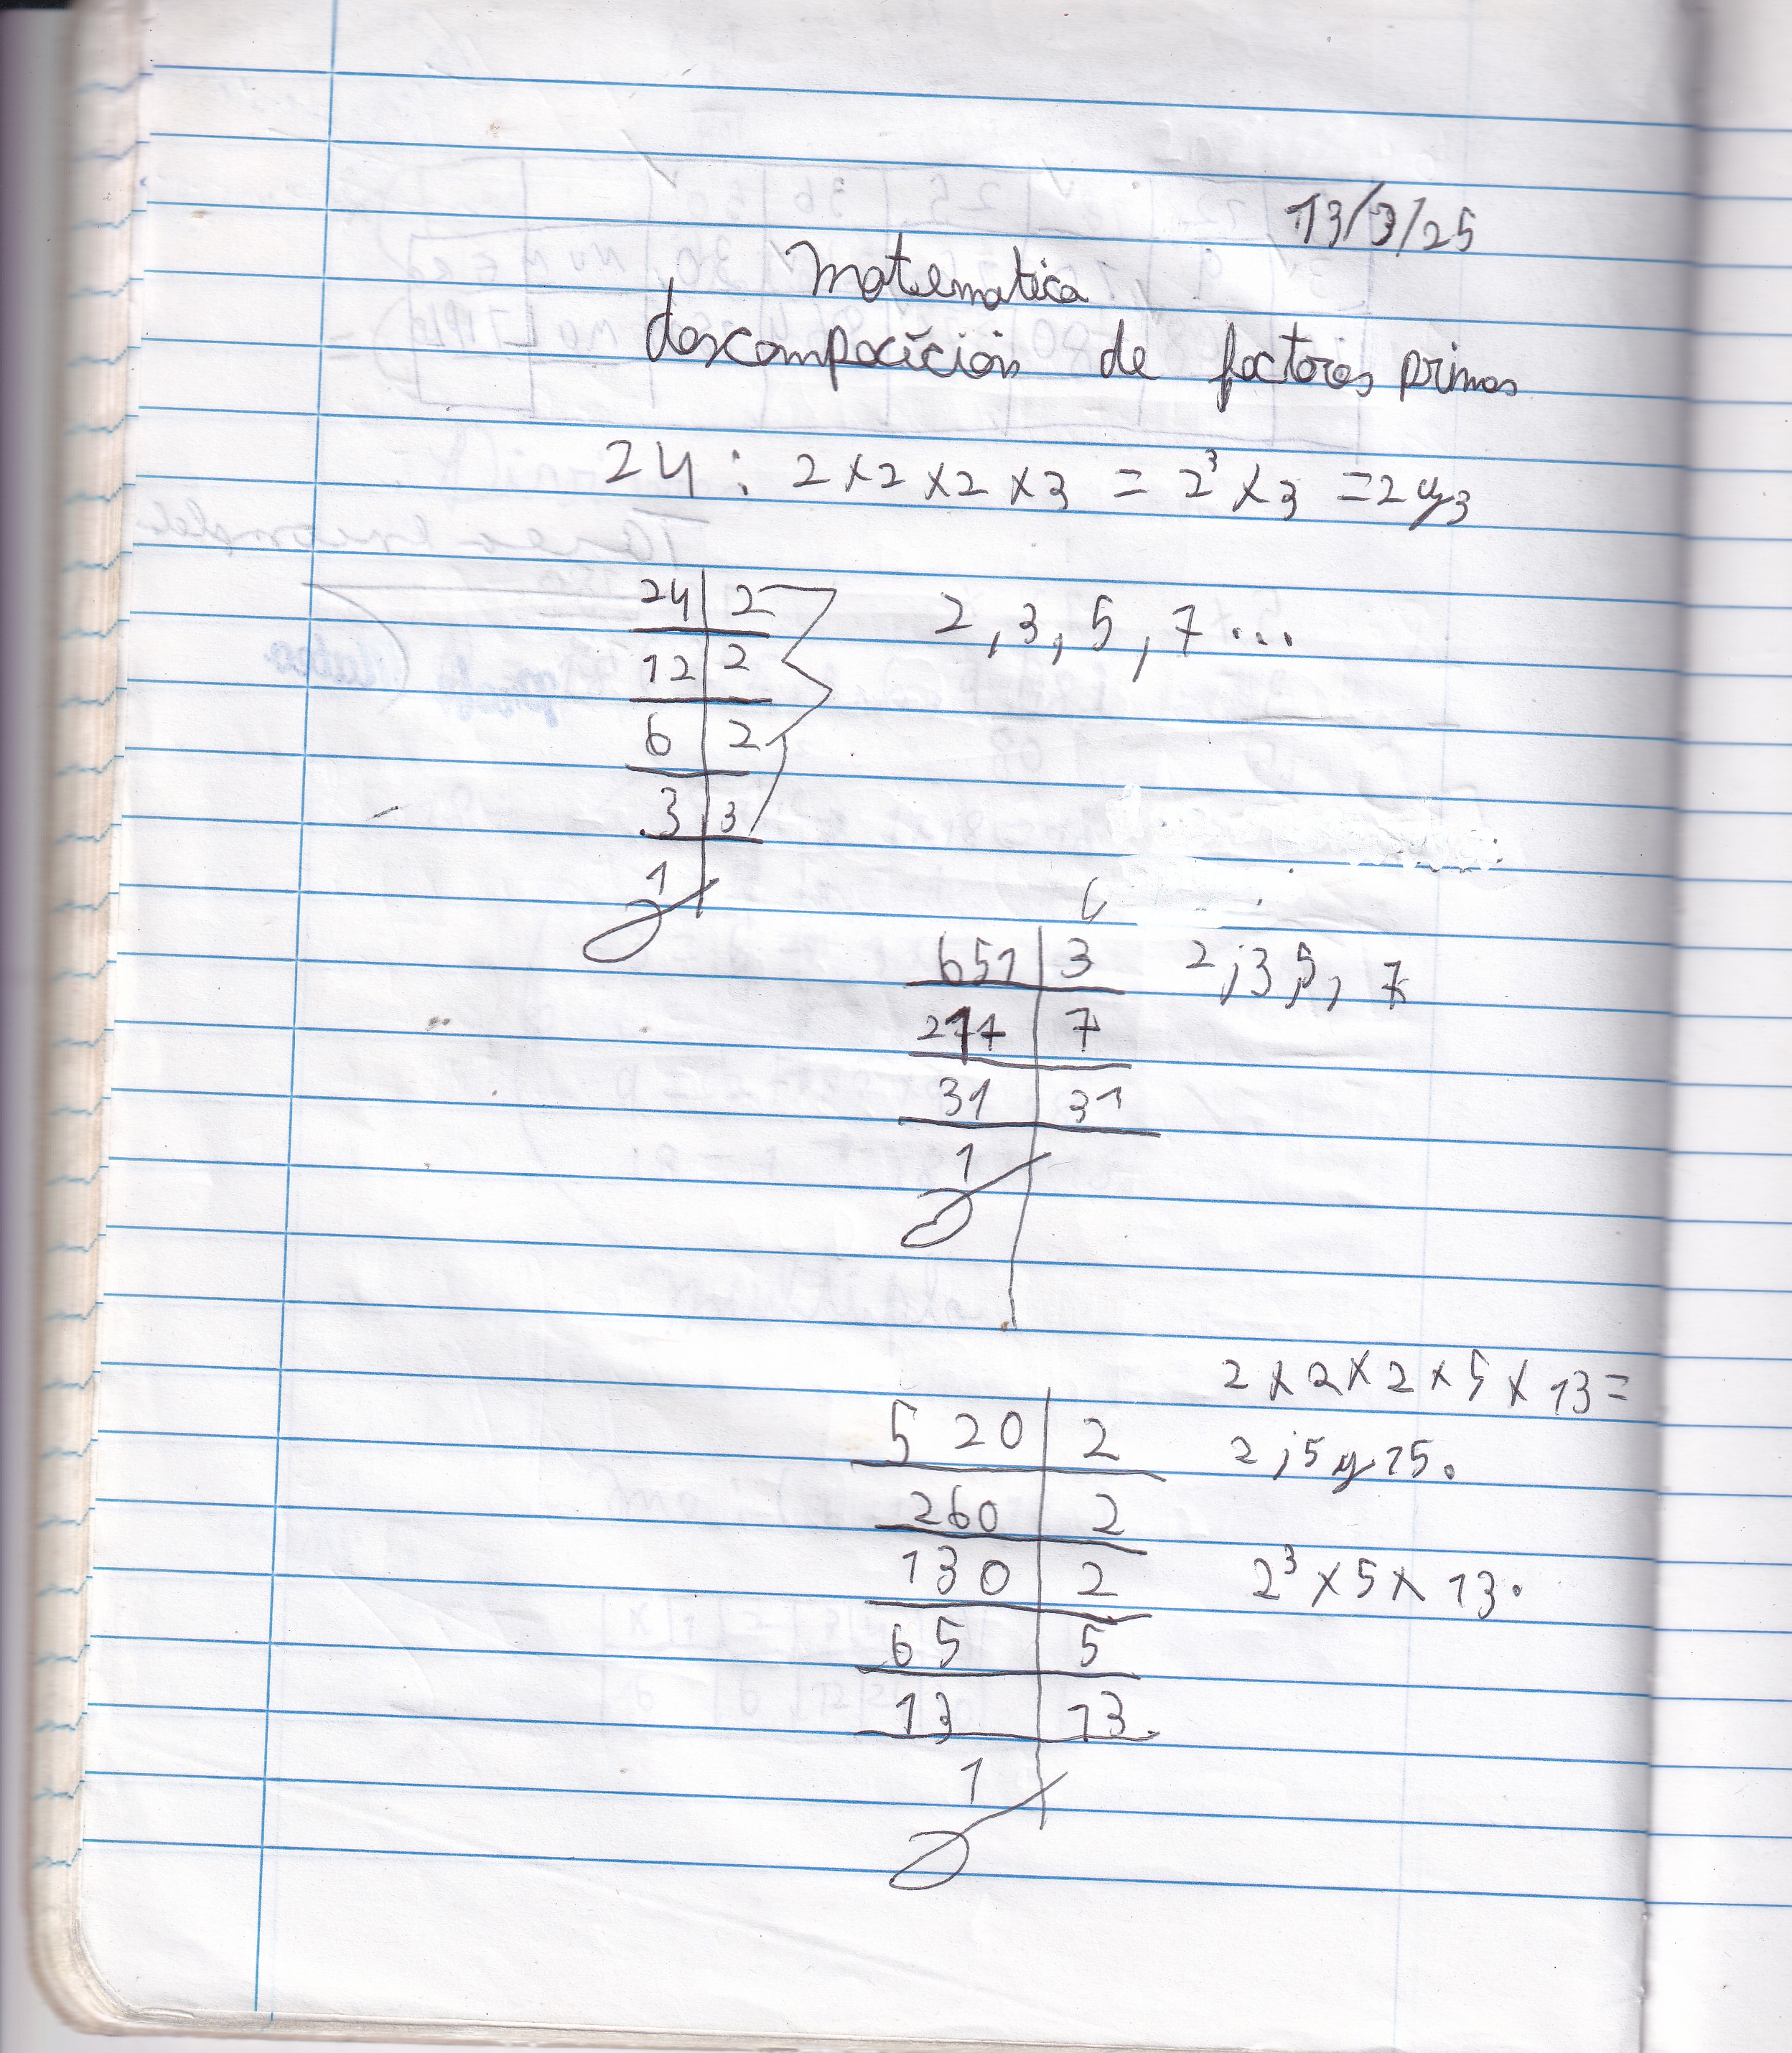 13/3/25
Matematica
descomposición de factores primos
24 : 2 x 2 x 2 x 3 = 2³ x 3 = 2 y 3
24 | 2
12 | 2
6 | 2
3 | 3
1
2, 3, 5, 7 ...
651 | 3
217 | 7
31 | 31
1
2, 3 5, 7
2 x 2 x 2 x 5 x 13 =
520 | 2
260 | 2
130 | 2
65 | 5
13 | 13.
1
2 ; 5 y 25.
2³ x 5 x 13.